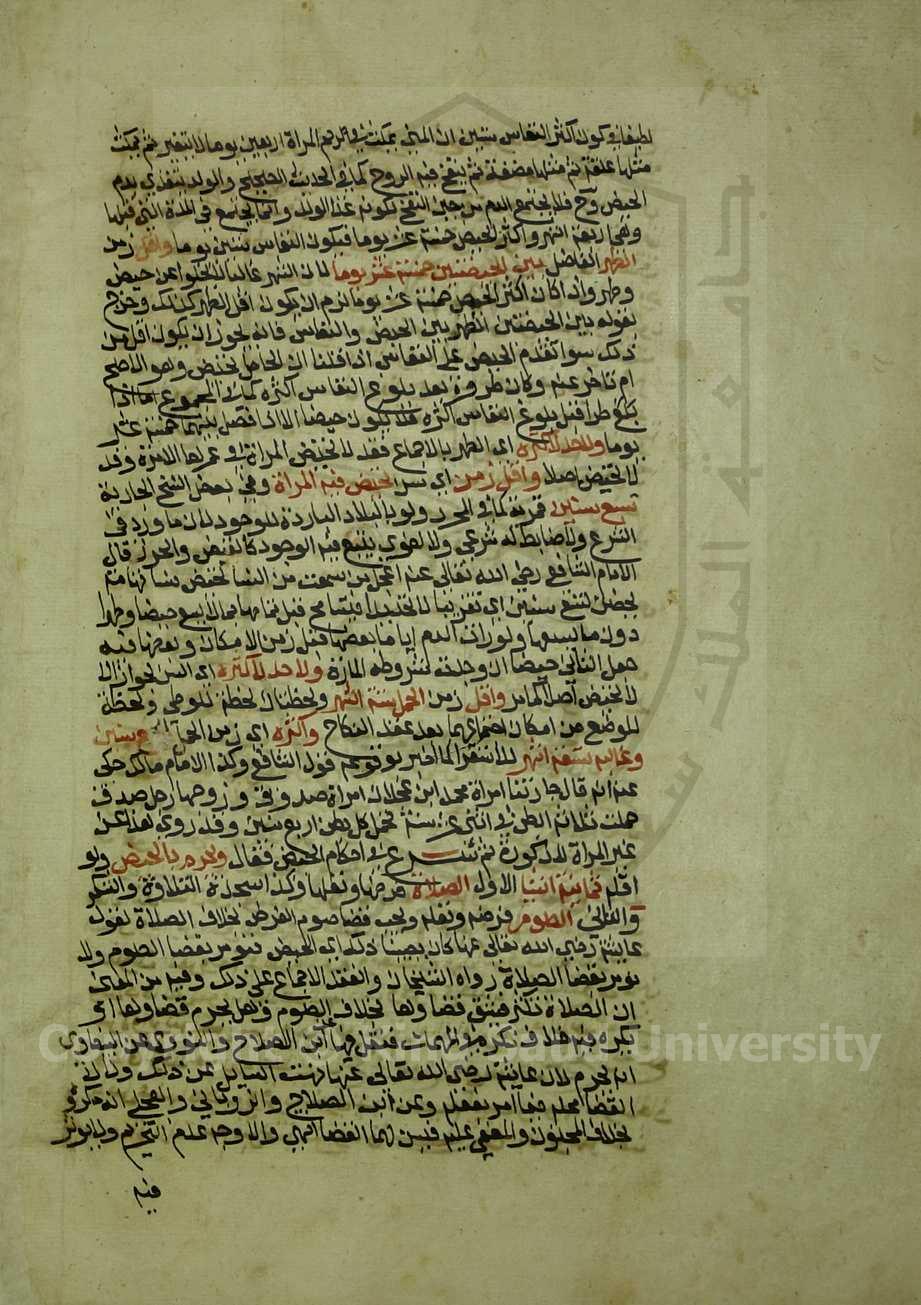 لطيفا في كون اكثر النفاس ستين ان المني يمكث في الرحم المراة اربعين يوما لا يتغير ثم يمكث
مثلها علقة ثم مثلها مضغة ثم ينفخ فيه الروح كما في الحديث الصحيح والولد يتغذي بدم
الحيض وح فلا يجتمع الدم من حين النفخ لكونه غذا الولد وانما يجتمع في المدة التي قبلها
وهي اربعة اشهر واكثر الحيض خمسة عشر يوما فيكون النفاس ستين يوما واقل زمن
الطهر الفاصل بين الحيضتين خمسة عشر يوما لان الشهر غالبا لا يخلو عن حيض
وطهر واذا كان اكثر الحيض خمسة عشر يوما لزم ان يكون اقل الطهر كذلك وخرج
بقوله بين الحيضتين الطهر بين الحيض والنفاس فانه يجوز ان يكون اقل من
ذلك سوا تقدم الحيض على النفاس اذا قلنا ان الحامل تحيض وهو الاصح
ام تاخر عنه وكان طروه بعد بلوغ النفاس اكثره كما في المجموع اما اذا
طرا قبل بلوغ النفاس اكثره فلا يكون حيضا الا اذا فصل بينهما خمسة عشر
يوما ولا حد لاكثره اي الطهر بالاجماع فقد لا تحيض المراة في عمرها الا مرة وقد
لا تحيض اصلا واقل زمن اي سن تحيض فيه المراة وفي بعض النسخ الجارية
تسع سنين قمرية كما في المحرر ولو بالبلاد الباردة للوجود لان ما ورد في
الشرع ولا ضابط له شرعي ولا لغوي يتبع فيه الوجود كالقبض والحرز قال
الامام الشافعي رضي الله تعالى عنه اعجل من سمعت من النسا تحيض نسا تهامة
يحضن لتسع سنين اي تقريبا لا تحديدا فيتسامح قبل تمامها بما لا يسع حيضا وطهرا
دون ما يسعهما ولو رات الدم اياما بعضها قبل زمن الامكان وبعضها فيه
جعل الثاني حيضا ان وجدت شروطه المارة ولا حد لاكثره اي السن لجواز ان لا
لا تحيض اصلا كما مر واقل زمن الحمل ستة اشهر ولحظتان لحظة للوطي ولحظة
للوضع من امكان اجتماعهما بعد عقد النكاح واكثره اي زمن الحمل اربع سنين
وغالبه تسعة اشهر للاستقرا كما اخبر بوقوعه قول الشافعي وكذا الامام مالك حكي
عنه انه قال جارتنا امراة محمد ابن عجلان امراة صدوق وزوجها رجل صدق
حملت ثلاثة ابطن في اثني عشر سنة تحمل كل بطن اربع سنين وقد روي هذا عن
غير المراة المذكورة ثم شرع في احكام الحيض فقال ويحرم بالحيض ولو
اقله ثمانية اشيا الاول الصلاة فرضها ونفلها وكذا سجدة التلاوة والشكر
والثاني الصوم فرضه ونفله ويجب قضا صوم الفرض بخلاف الصلاة لقول
عايشة رضي الله تعالى عنها كان يصيبنا ذلك اي الحيض فنؤمر بقضا الصوم ولا
نؤمر بقضا الصلاة رواه الشيخان وانعقد الاجماع على ذلك وفيه من المعنى
ان الصلاة تكثر فيشق قضاوها بخلاف الصوم وهل يحرم قضاوها او
يكره فيه خلاف ذكره في المهمات فنقل فيها عن ابن الصلاح والنووي عن البيضاوي
انه يحرم لان عايشة رضي الله تعالى عنها نهت السايل عن ذلك ولان
القضا محله فيما امر بفعله وعن ابن الصلاح والروياني والعجلي انه مكروه
بخلاف المجنون والمغمى عليه فيسن لهما القضا انتهى والاوجه عدم التحريم ولا يوثر
فيه
جامعة الملك سعود
University